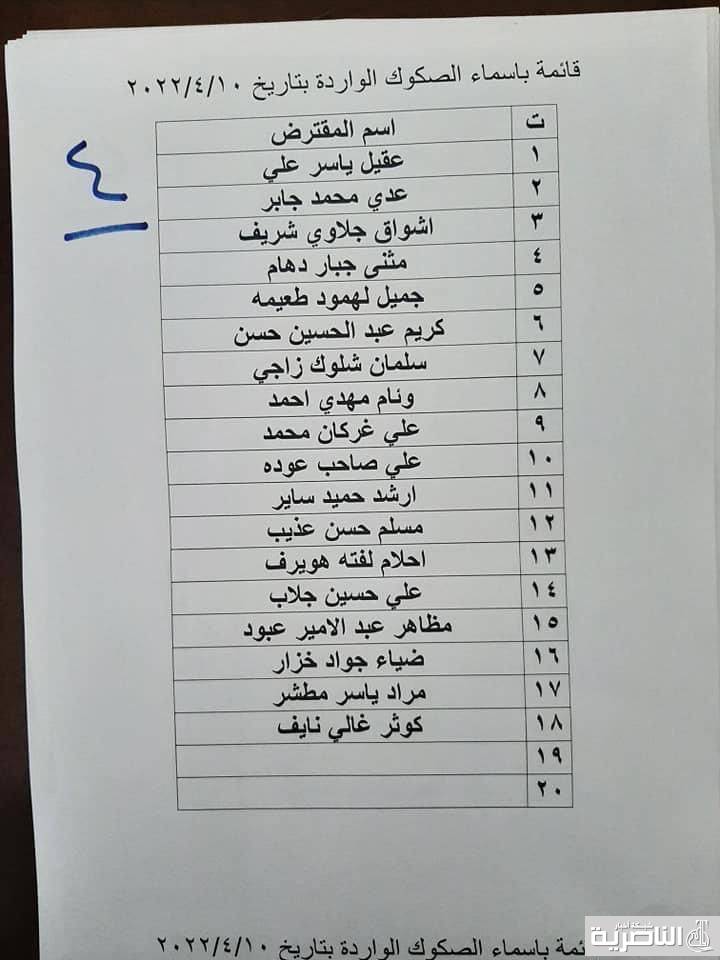 قائمة باسماء الصكوك الواردة بتاريخ ٢٠٢٢/٤/١٠
٤
ت اسم المقترض
١ عقيل ياسر علي
٢ عدي محمد جابر
٣ اشواق جلاوي شريف
٤ مثنى جبار دهام
٥ جميل لهمود طعيمه
٦ كريم عبد الحسين حسن
٧ سلمان شلوك زاجي
٨ ونام مهدي احمد
٩ علي غركان محمد
١٠ علي صاحب عوده
١١ ارشد حميد ساير
١٢ مسلم حسن عذيب
١٣ احلام لفته هويرف
١٤ علي حسين جلاب
١٥ مظاهر عبد الامير عبود
١٦ ضياء جواد خزار
١٧ مراد ياسر مطشر
١٨ كوثر غالي نايف
١٩
٢٠
ئمة باسماء الصكوك الواردة بتاريخ ٢٠٢٢/٤/١٠
شبكة اخبار
الناصرية